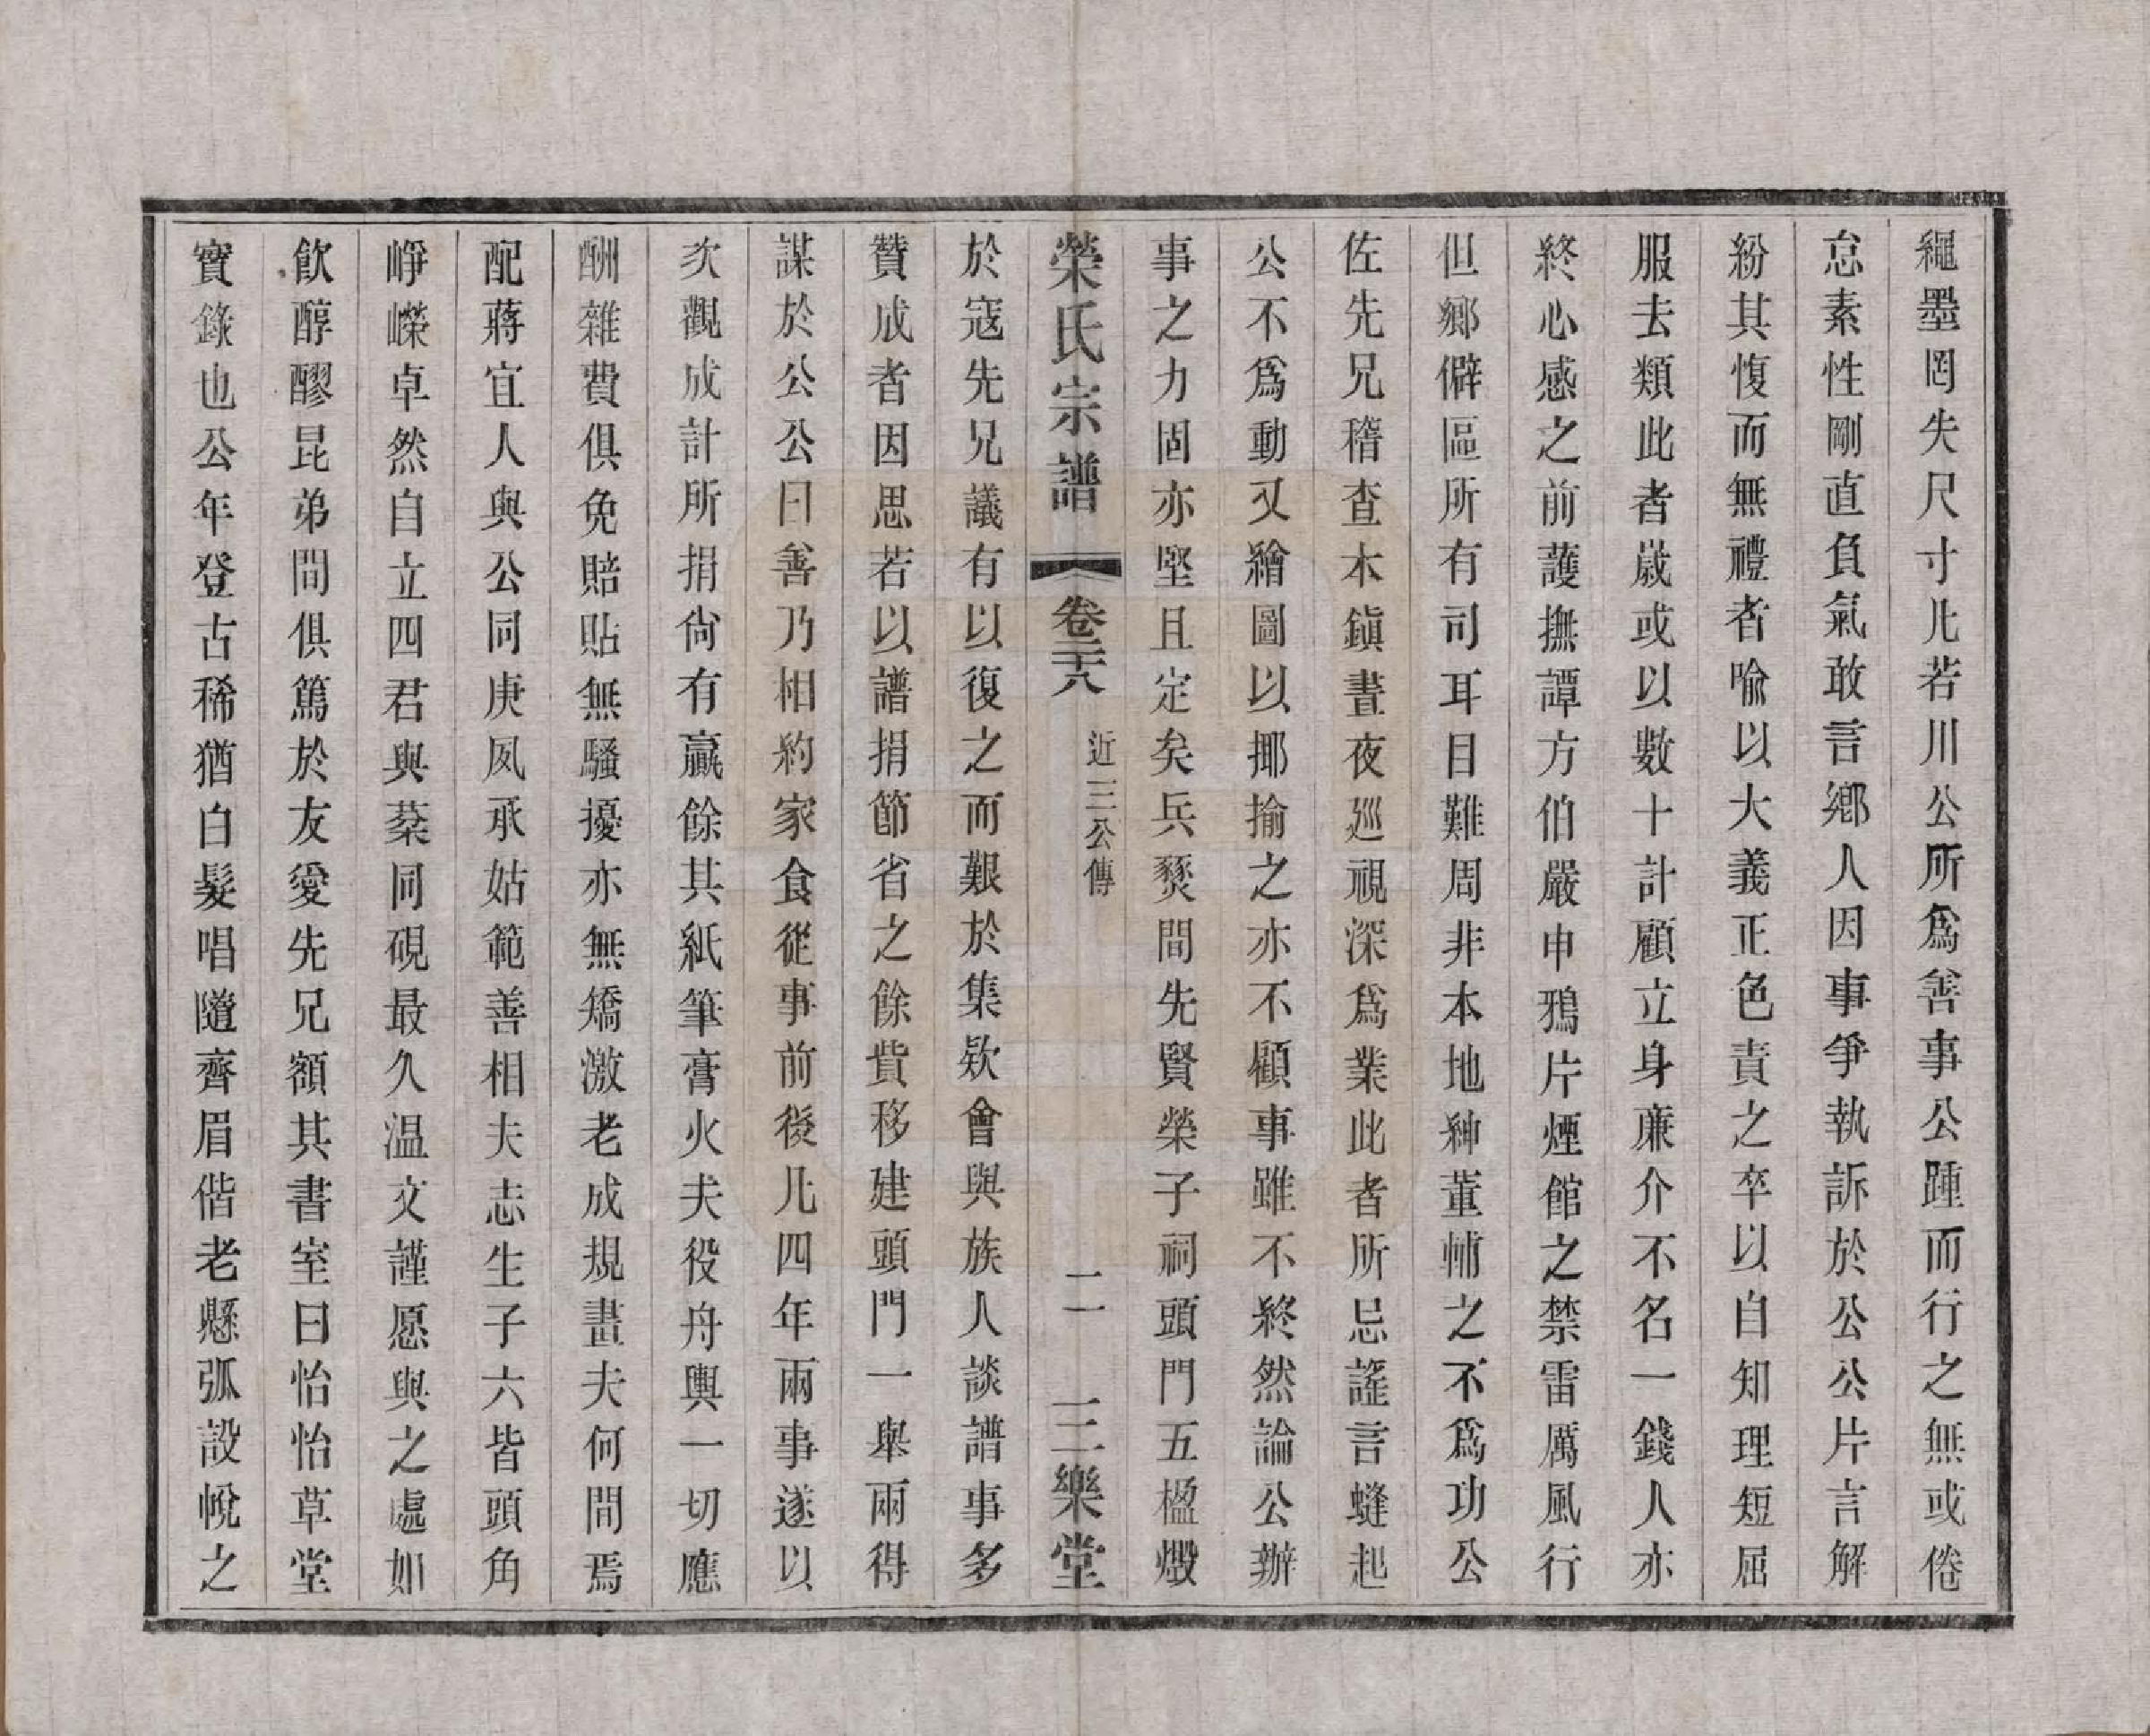 繩墨罔失尺寸凡若川公所爲善事公踵而行之無或倦
怠素性剛直負氣敢言鄉人因事爭執訴於公公片言解
紛其愎而無禮者喻以大義正色責之卒以自知理短屈
服去類此者歲或以數十計顧立身廉介不名一錢人亦
終心感之前護撫譚方伯嚴申鴉片煙館之禁雷厲風行
但鄉僻區所有司耳目難周非本地紳董輔之不爲功公
佐先兄稽查木鎭晝夜廵視深爲業此者所忌謠言蠭起
公不爲動又繪圖以揶揄之亦不顧事雖不終然論公辦
事之力固亦堅且定矣兵燹間先賢榮子祠頭門五楹燬
榮氏宗譜 卷二十八 近三公傳 二 三樂堂
於寇先兄議有以復之而艱於集欵會與族人談譜事多
贊成者因思若以譜捐節省之餘貲移建頭門一舉兩得
謀於公公曰善乃相約家食從事前後凡四年兩事遂以
次觀成計所捐尙有贏餘其紙筆膏火夫役舟輿一切應
酬雜費俱免賠貼無騷擾亦無矯激老成規畫夫何間焉
配蔣宜人與公同庚夙承姑範善相夫志生子六皆頭角
崢嶸卓然自立四君與棻同硯最久温文謹愿與之處如
飮醇醪昆弟間俱篤於友愛先兄額其書室曰怡怡草堂
實錄也公年登古稀猶白髮唱隨齊眉偕老懸弧設帨之